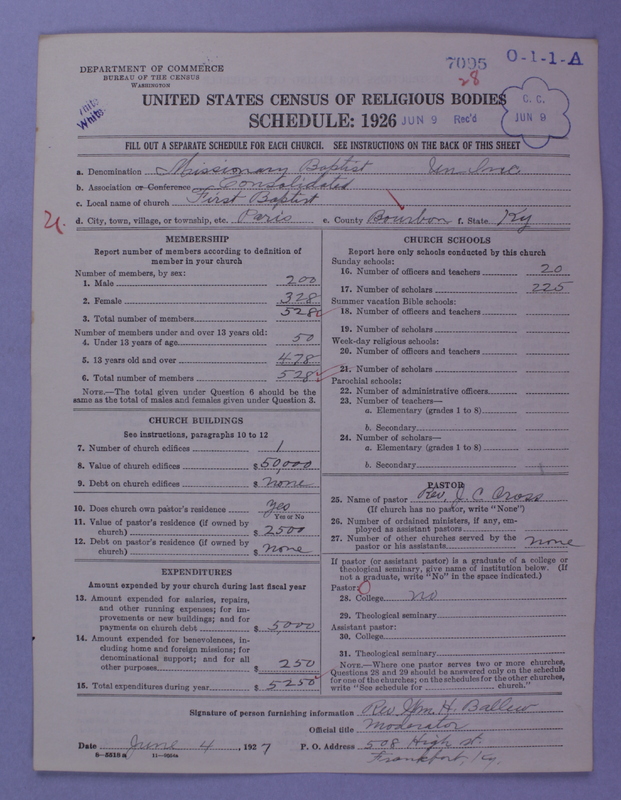 7095 O-1-1-A
28
DEPARTMENT OF COMMERCE
BUREAU OF THE CENSUS
WASHINGTON
White
UNITED STATES CENSUS OF RELIGIOUS BODIES
SCHEDULE: 1926 JUN 9 Rec'd
C. C.
JUN 9
FILL OUT A SEPARATE SCHEDULE FOR EACH CHURCH. SEE INSTRUCTIONS ON THE BACK OF THIS SHEET
a. Denomination Missionary Baptist
b. Association or Conference Consolidated
c. Local name of church First Baptist
d. City, town, village, or township, etc. Paris e. County Bourbon f. State Ky
MEMBERSHIP
Report number of members according to definition of
member in your church
Number of members, by sex:
1. Male 200
2. Female 328
3. Total number of members 528
Number of members under and over 13 years old:
4. Under 13 years of age 50
5. 13 years old and over 478
6. Total number of members 528
NOTE.—The total given under Question 6 should be the
same as the total of males and females given under Question 3.
CHURCH BUILDINGS
See instructions, paragraphs 10 to 12
7. Number of church edifices 1
8. Value of church edifices $ 50,000
9. Debt on church edifices $ none
10. Does church own pastor's residence Yes
Yes or No
11. Value of pastor's residence (if owned by
church) $ 2500
12. Debt on pastor's residence (if owned by
church) $ none
EXPENDITURES
Amount expended by your church during last fiscal year
13. Amount expended for salaries, repairs,
and other running expenses; for im-
provements or new buildings; and for
payments on church debt $ 5000
14. Amount expended for benevolences, in-
cluding home and foreign missions; for
denominational support; and for all
other purposes $ 250
15. Total expenditures during year $ 5250
CHURCH SCHOOLS
Report here only schools conducted by this church
Sunday schools:
16. Number of officers and teachers 20
17. Number of scholars 225
Summer vacation Bible schools:
18. Number of officers and teachers
19. Number of scholars
Week-day religious schools:
20. Number of officers and teachers
21. Number of scholars
Parochial schools:
22. Number of administrative officers
23. Number of teachers—
a. Elementary (grades 1 to 8)
b. Secondary
24. Number of scholars—
a. Elementary (grades 1 to 8)
b. Secondary
PASTOR
25. Name of pastor Rev. J. C. Cross
(If church has no pastor, write "None")
26. Number of ordained ministers, if any, em-
ployed as assistant pastors
27. Number of other churches served by the
pastor or his assistants none
If pastor (or assistant pastor) is a graduate of a college or
theological seminary, give name of institution below. (If
not a graduate, write "No" in the space indicated.)
Pastor: 0
28. College no
29. Theological seminary
Assistant pastor:
30. College
31. Theological seminary
NOTE.—Where one pastor serves two or more churches,
Questions 28 and 29 should be answered only on the schedule
for one of the churches; on the schedules for the other churches,
write "See schedule for church."
Signature of person furnishing information Rev Wm. H. Ballew
Official title Moderator
Date June 4, 1927 P. O. Address 508 High st.
Frankfort, Ky.